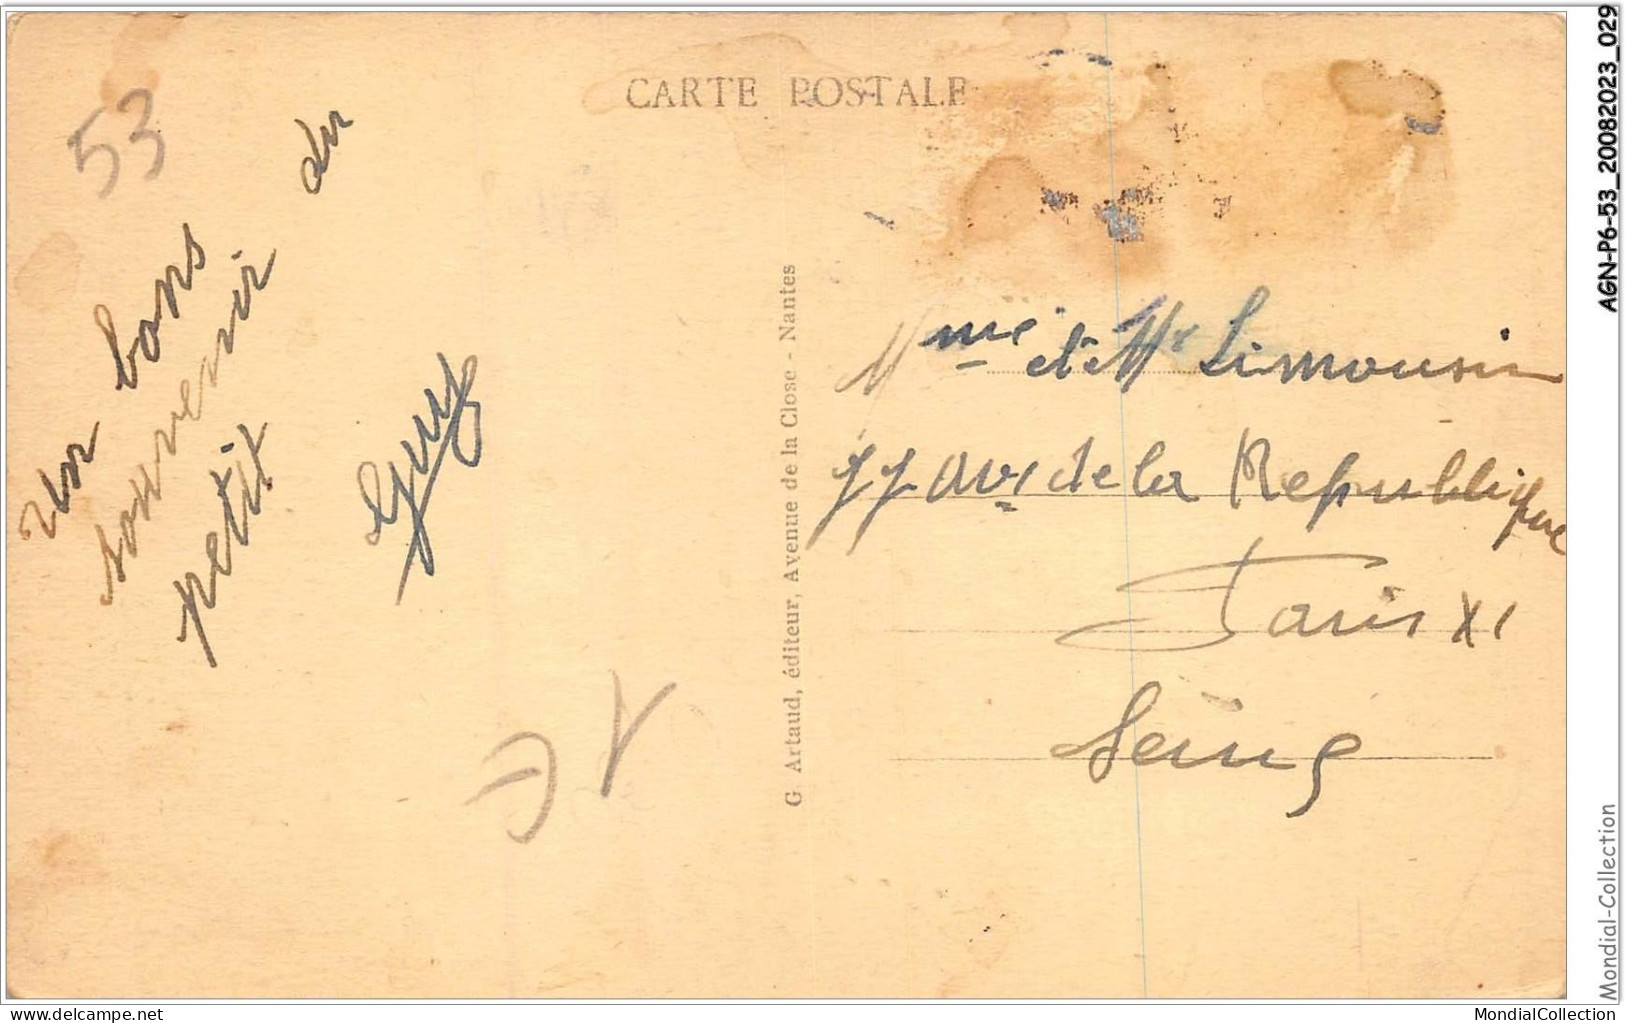 CARTE POSTALE
53
un bons
souvenir du
petit
Guy
G. Artaud, éditeur, Avenue de la Close - Nantes
Mme et Mr Limousin
77 Av. de la Republique
Paris XI
Seine
AGN-P6-53_20082023_029
Mondial-Collection
www.delcampe.net
MondialCollection